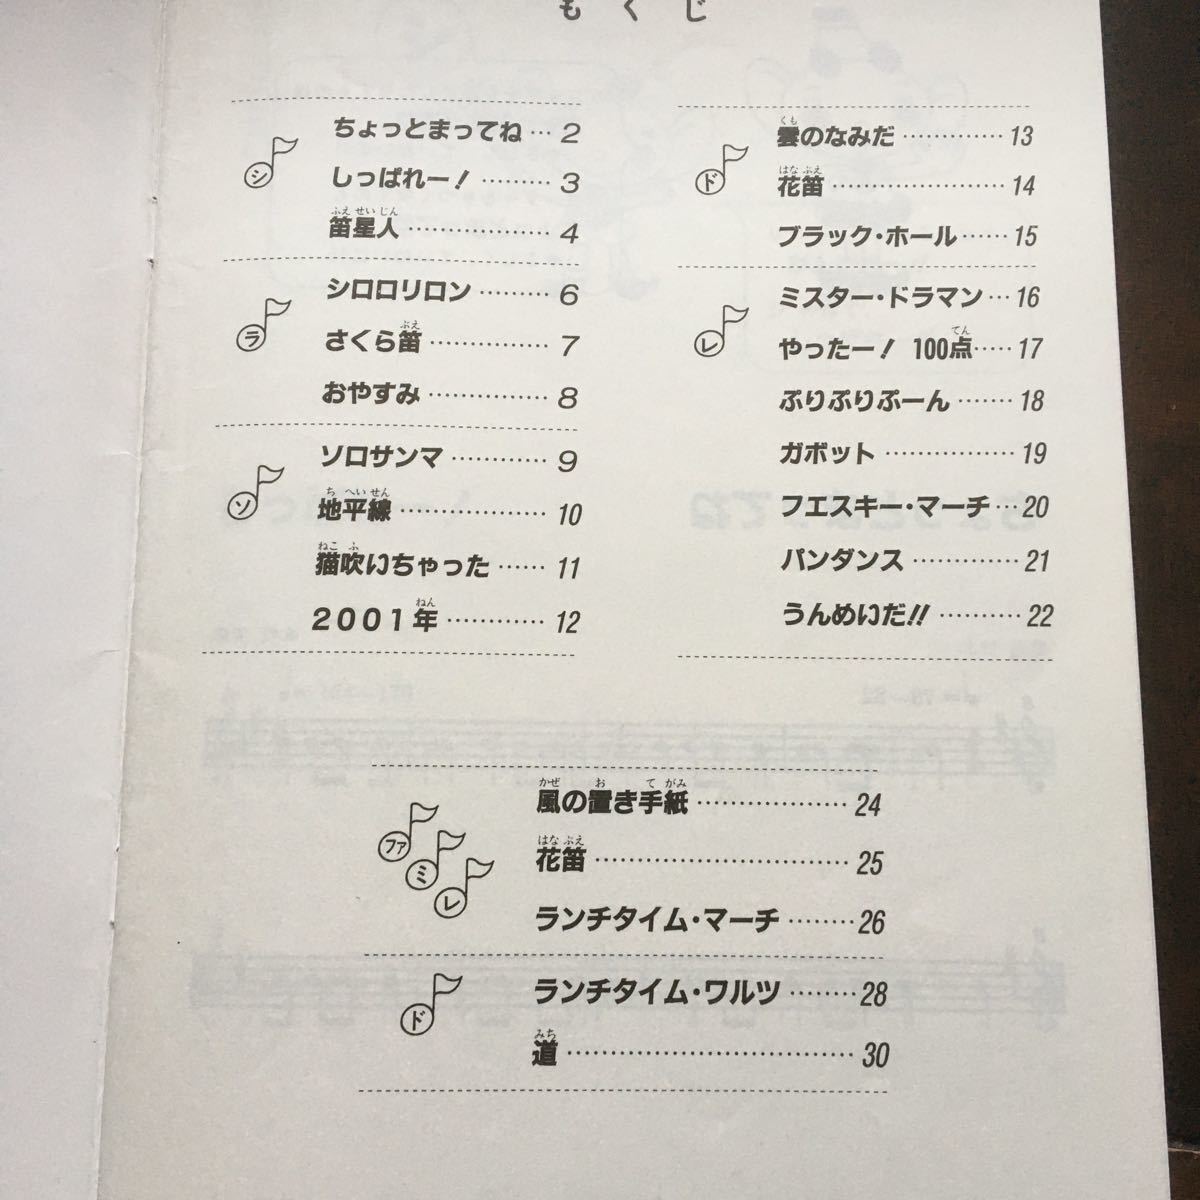 もくじ
シ
ちょっとまってね…2
しっぱれー！………3
ふえ せい じん
笛星人………………4
ラ
シロロリロン………6
ぶえ
さくら笛……………7
おやすみ……………8
ソ
ソロサンマ…………9
ち へい せん
地平線………………10
ねこ ふ
猫吹いちゃった……11
ねん
2001年…………12
ド
くも
雲のなみだ…………13
はな ぶえ
花笛…………………14
ブラック・ホール……15
レ
ミスター・ドラマン…16
てん
やったー！ 100点……17
ぷりぷりぷーん……18
ガボット……………19
フエスキー・マーチ…20
パンダンス…………21
うんめいだ!!………22
ファ
ミ
レ
かぜ お て がみ
風の置き手紙………………24
はな ぶえ
花笛…………………………25
ランチタイム・マーチ………26
ド
ランチタイム・ワルツ………28
みち
道……………………………30